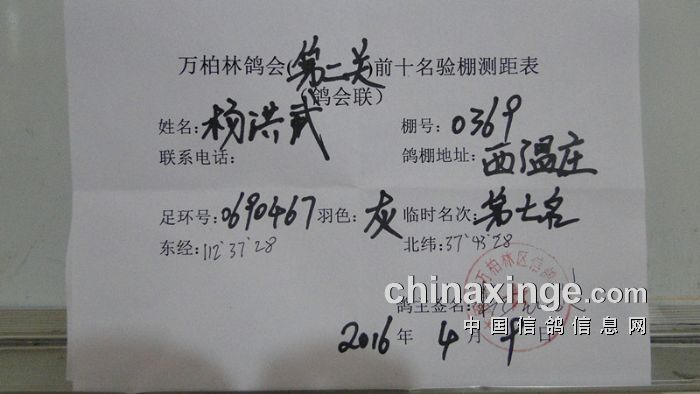 万柏林鸽会(第二关)前十名验棚测距表
(鸽会联)
姓名:杨洪武 棚号:0369
联系电话: 鸽棚地址:西温庄
足环号:0690467 羽色:灰 临时名次:第七名
东经:112°37'28 北纬:37°43'28
万柏林区信鸽
鸽主签名:
chinaxinge.com
中国信鸽信息网
2016年4月9日